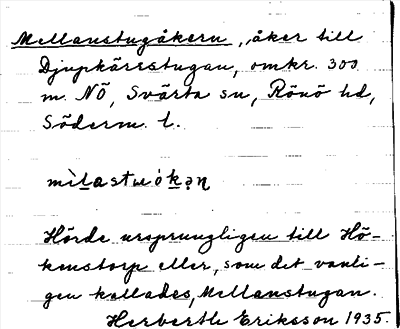 Mellanstugåkern, åker till
Djupkärsstugan, omkr. 300
m. NÖ, Svärta sn, Rönö hd,
Söderm. l.
mìlastuókən
Hörde ursprungligen till Hö-
kenstorp eller, som det vanli-
gen kallades, Mellanstugan.
Herberth Eriksson 1935.